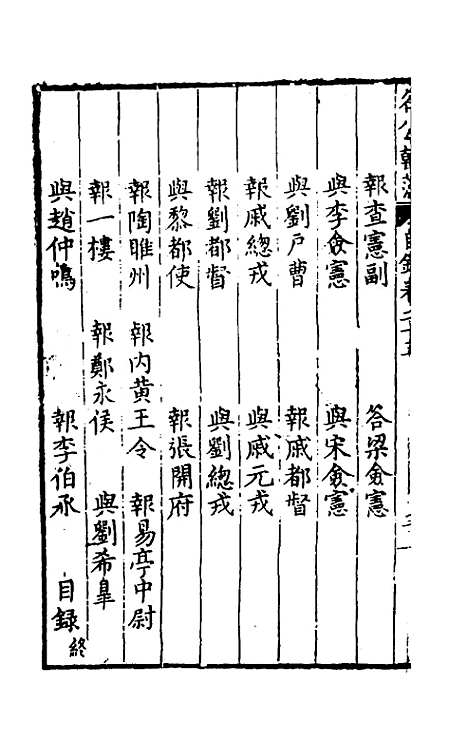 報查憲副　答梁僉憲
與李僉憲　與宋僉憲
與劉戶曹　報戚都督
報戚總戎　與戚元戎
報劉都督　與劉總戎
與黎都使　報張開府
報陶睢州　報內黃王令　報易亭中尉
報一樓　報鄭永侯　與劉希皐
與趙仲鳴　報李伯承　目録終